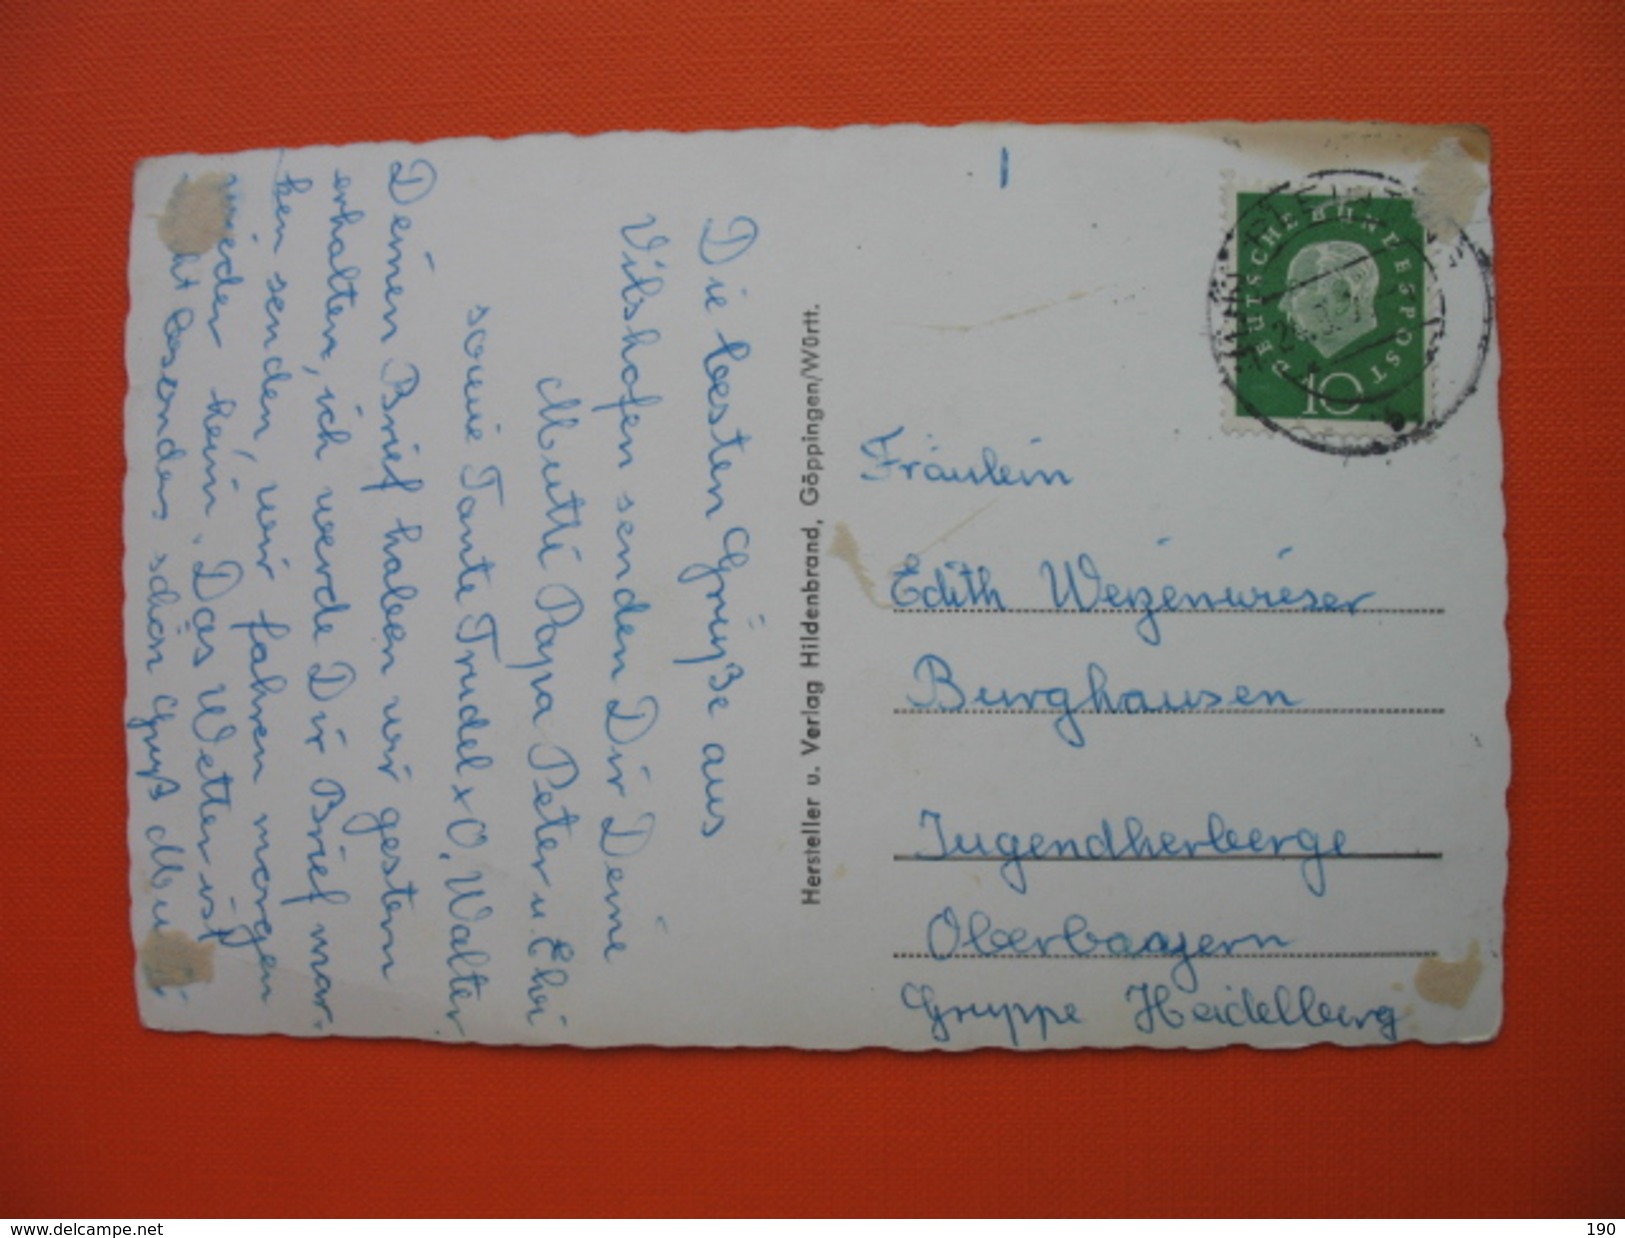 Die besten Grüße aus
Vilshofen senden Dir Deine
Mutti Papa Peter u. Ehri
sowie Tante Trudel + O. Walter
Deinen Brief haben wir gestern
erhalten, ich werde Dir Brief mar-
ken senden, wir fahren morgen
wieder heim. Das Wetter ist
besonders schön Gruß Mutti
Hersteller u. Verlag Hildenbrand, Göppingen/Württ.
DEUTSCHE BUNDESPOST
10
Fräulein
Edith Weizenwieser
Burghausen
Jugendherberge
Oberbaayern
Gruppe Heidelberg
www.delcampe.net
190